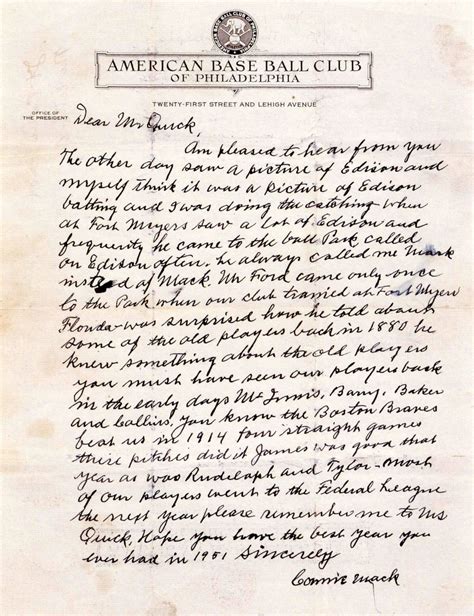 AMERICAN BASE BALL CLUB
OF PHILADELPHIA
TWENTY-FIRST STREET AND LEHIGH AVENUE
OFFICE OF
THE PRESIDENT
Dear Mr Quick,
Am pleased to hear from you
The other day saw a picture of Edison and
myself think it was a picture of Edison
batting and I was doing the catching - when
at Fort Meyers saw a lot of Edison and
frequently he came to the ball Park called
on Edison often. he always called me Mark
instead of Mack. Mr Ford came only once
to the Park when our club trained at Fort Myers
Florida - was surprised how he told about
some of the old players back in 1880 he
knew something about the old players
you must have seen our players back
in the early days McInnis, Barry, Baker
and Collins, you know the Boston Braves
beat us in 1914 four straight games
their pitches did it James was good that
year as was Rudolaph and Tylor - most
of our players went to the Federal League
the next year please remember me to Mrs
Quick, Hope you have the best year you
ever had in 1951 Sincerely
Connie Mack